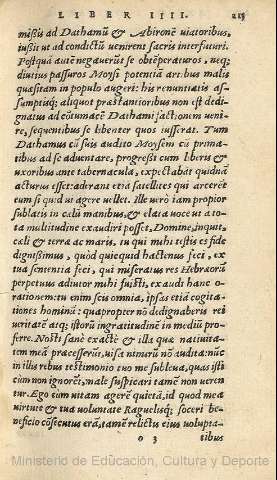 LIBER IIII. 215
missis ad Dathamũ & Abironẽ uiatoribus,
iussit ut ad condictũ uenirent sacris interfuturi.
Postquã autẽ negauerũt se obtẽperaturos, neq;
diutius passuros Moysi potentiã artibus malis
quæsitam in populo augeri: his renuntiatis as-
sumptisq; aliquot præstantioribus non est dedi-
gnatus ad cõtumacẽ Dathami factionem ueni-
re, sequentibus se libenter quos iusserat. Tum
Dathamus cũ suis audito Moysem cũ prima-
tibus ad se aduentare, progressi cum liberis &
uxoribus ante tabernacula, expectabãt quidnã
acturus esset: aderant etiã satellites qui arcerẽt
eum si quid ui agere uellet. Ille uerò iam propior
sublatis in cælũ manibus, & elata uoce ut a to-
ta multitudine exaudiri posset, Domine, inquit,
cæli & terra ac maris, tu qui mihi testis es fide
dignissimus, quòd quicquid hactenus feci, ex
tua sententia feci, qui miseratus res Hebræorũ
perpetuus adiutor mihi fuisti, exaudi hanc o-
rationem: tu enim scis omnia, ipsas etiã cogita-
tiones hominũ: quapropter nõ dedignaberis rei
ueritatẽ atq; istorũ ingratitudinẽ in mediũ pro-
ferre. Nosti sanè exactè & illa quæ natiuita-
tem meã præcesserũt, uisa nimirũ nõ audita: nũc
in illis rebus testimonio tuo me subleua, quas isti
cum non ignorẽt, male suspicari tamẽ non ueren
tur. Ego cum uitam agerẽ quietã, id quod mea
uirtute & tua uoluntate Raguelisq; soceri be-
neficio cõsecutus erã, tamẽ relictis eius uolupta-
o 3 tibus
Ministerio de Educación, Cultura y Deporte